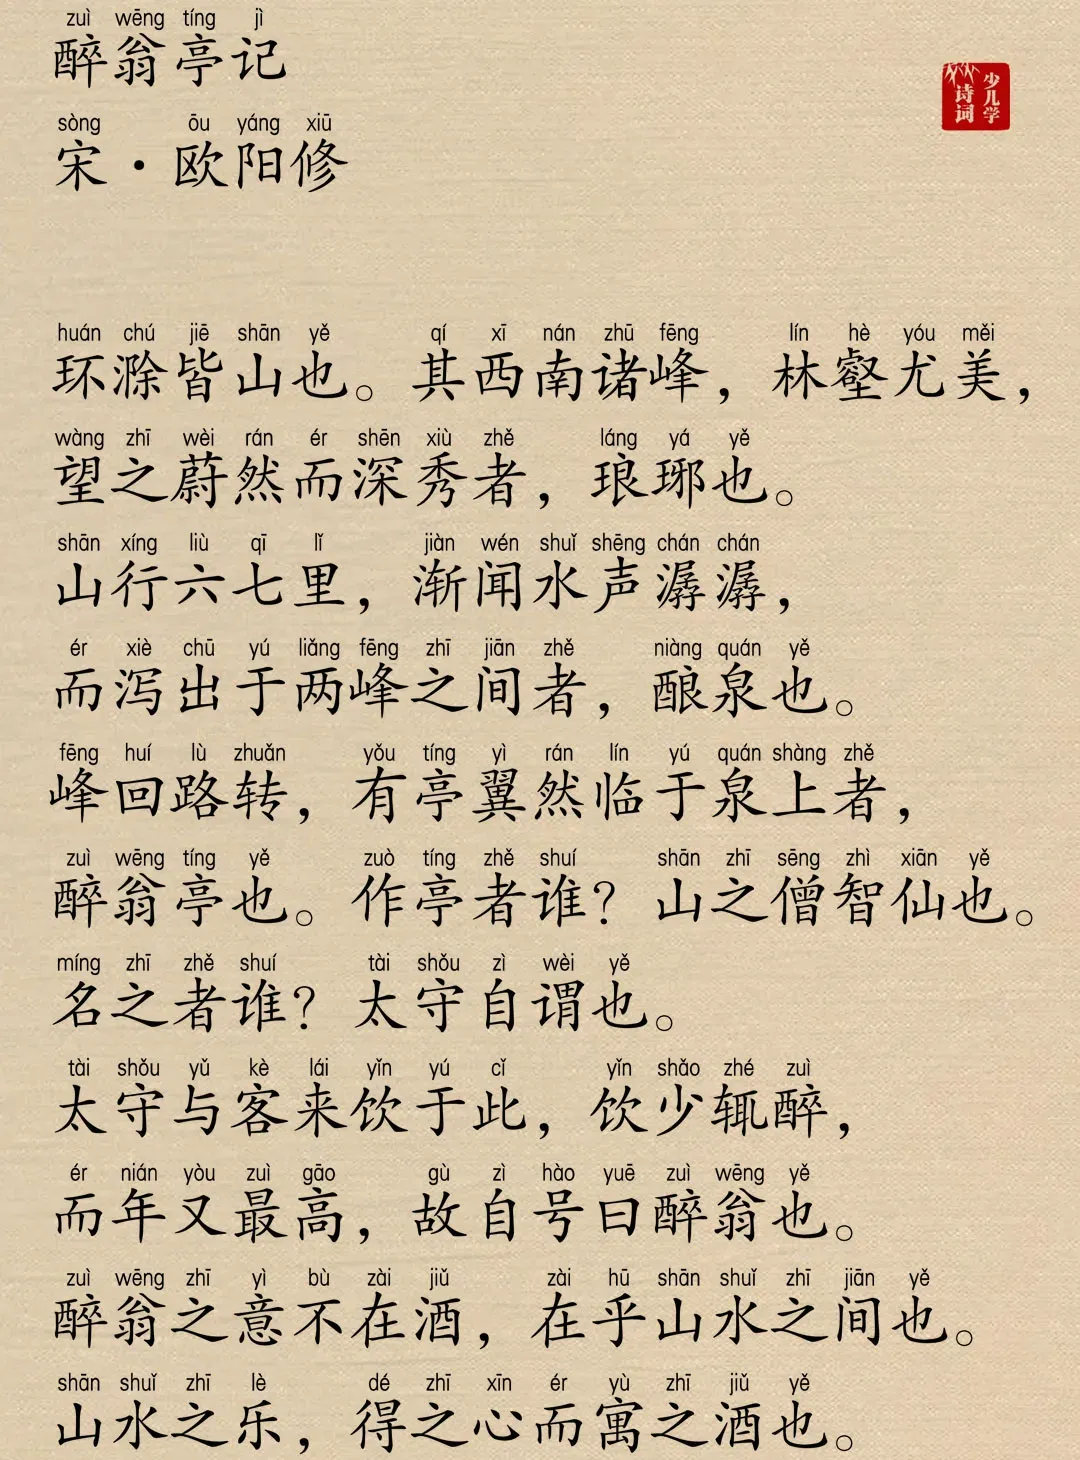 zuì wēng tíng jì
醉翁亭记
少儿学
诗词
sòng ōu yáng xiū
宋·欧阳修
huán chú jiē shān yě qí xī nán zhū fēng lín hè yóu měi
环滁皆山也。其西南诸峰，林壑尤美，
wàng zhī wèi rán ér shēn xiù zhě láng yá yě
望之蔚然而深秀者，琅琊也。
shān xíng liù qī lǐ jiàn wén shuǐ shēng chán chán
山行六七里，渐闻水声潺潺，
ér xiè chū yú liǎng fēng zhī jiān zhě niàng quán yě
而泻出于两峰之间者，酿泉也。
fēng huí lù zhuǎn yǒu tíng yì rán lín yú quán shàng zhě
峰回路转，有亭翼然临于泉上者，
zuì wēng tíng yě zuò tíng zhě shuí shān zhī sēng zhì xiān yě
醉翁亭也。作亭者谁？山之僧智仙也。
míng zhī zhě shuí tài shǒu zì wèi yě
名之者谁？太守自谓也。
tài shǒu yǔ kè lái yǐn yú cǐ yǐn shǎo zhé zuì
太守与客来饮于此，饮少辄醉，
ér nián yòu zuì gāo gù zì hào yuē zuì wēng yě
而年又最高，故自号曰醉翁也。
zuì wēng zhī yì bù zài jiǔ zài hū shān shuǐ zhī jiān yě
醉翁之意不在酒，在乎山水之间也。
shān shuǐ zhī lè dé zhī xīn ér yù zhī jiǔ yě
山水之乐，得之心而寓之酒也。